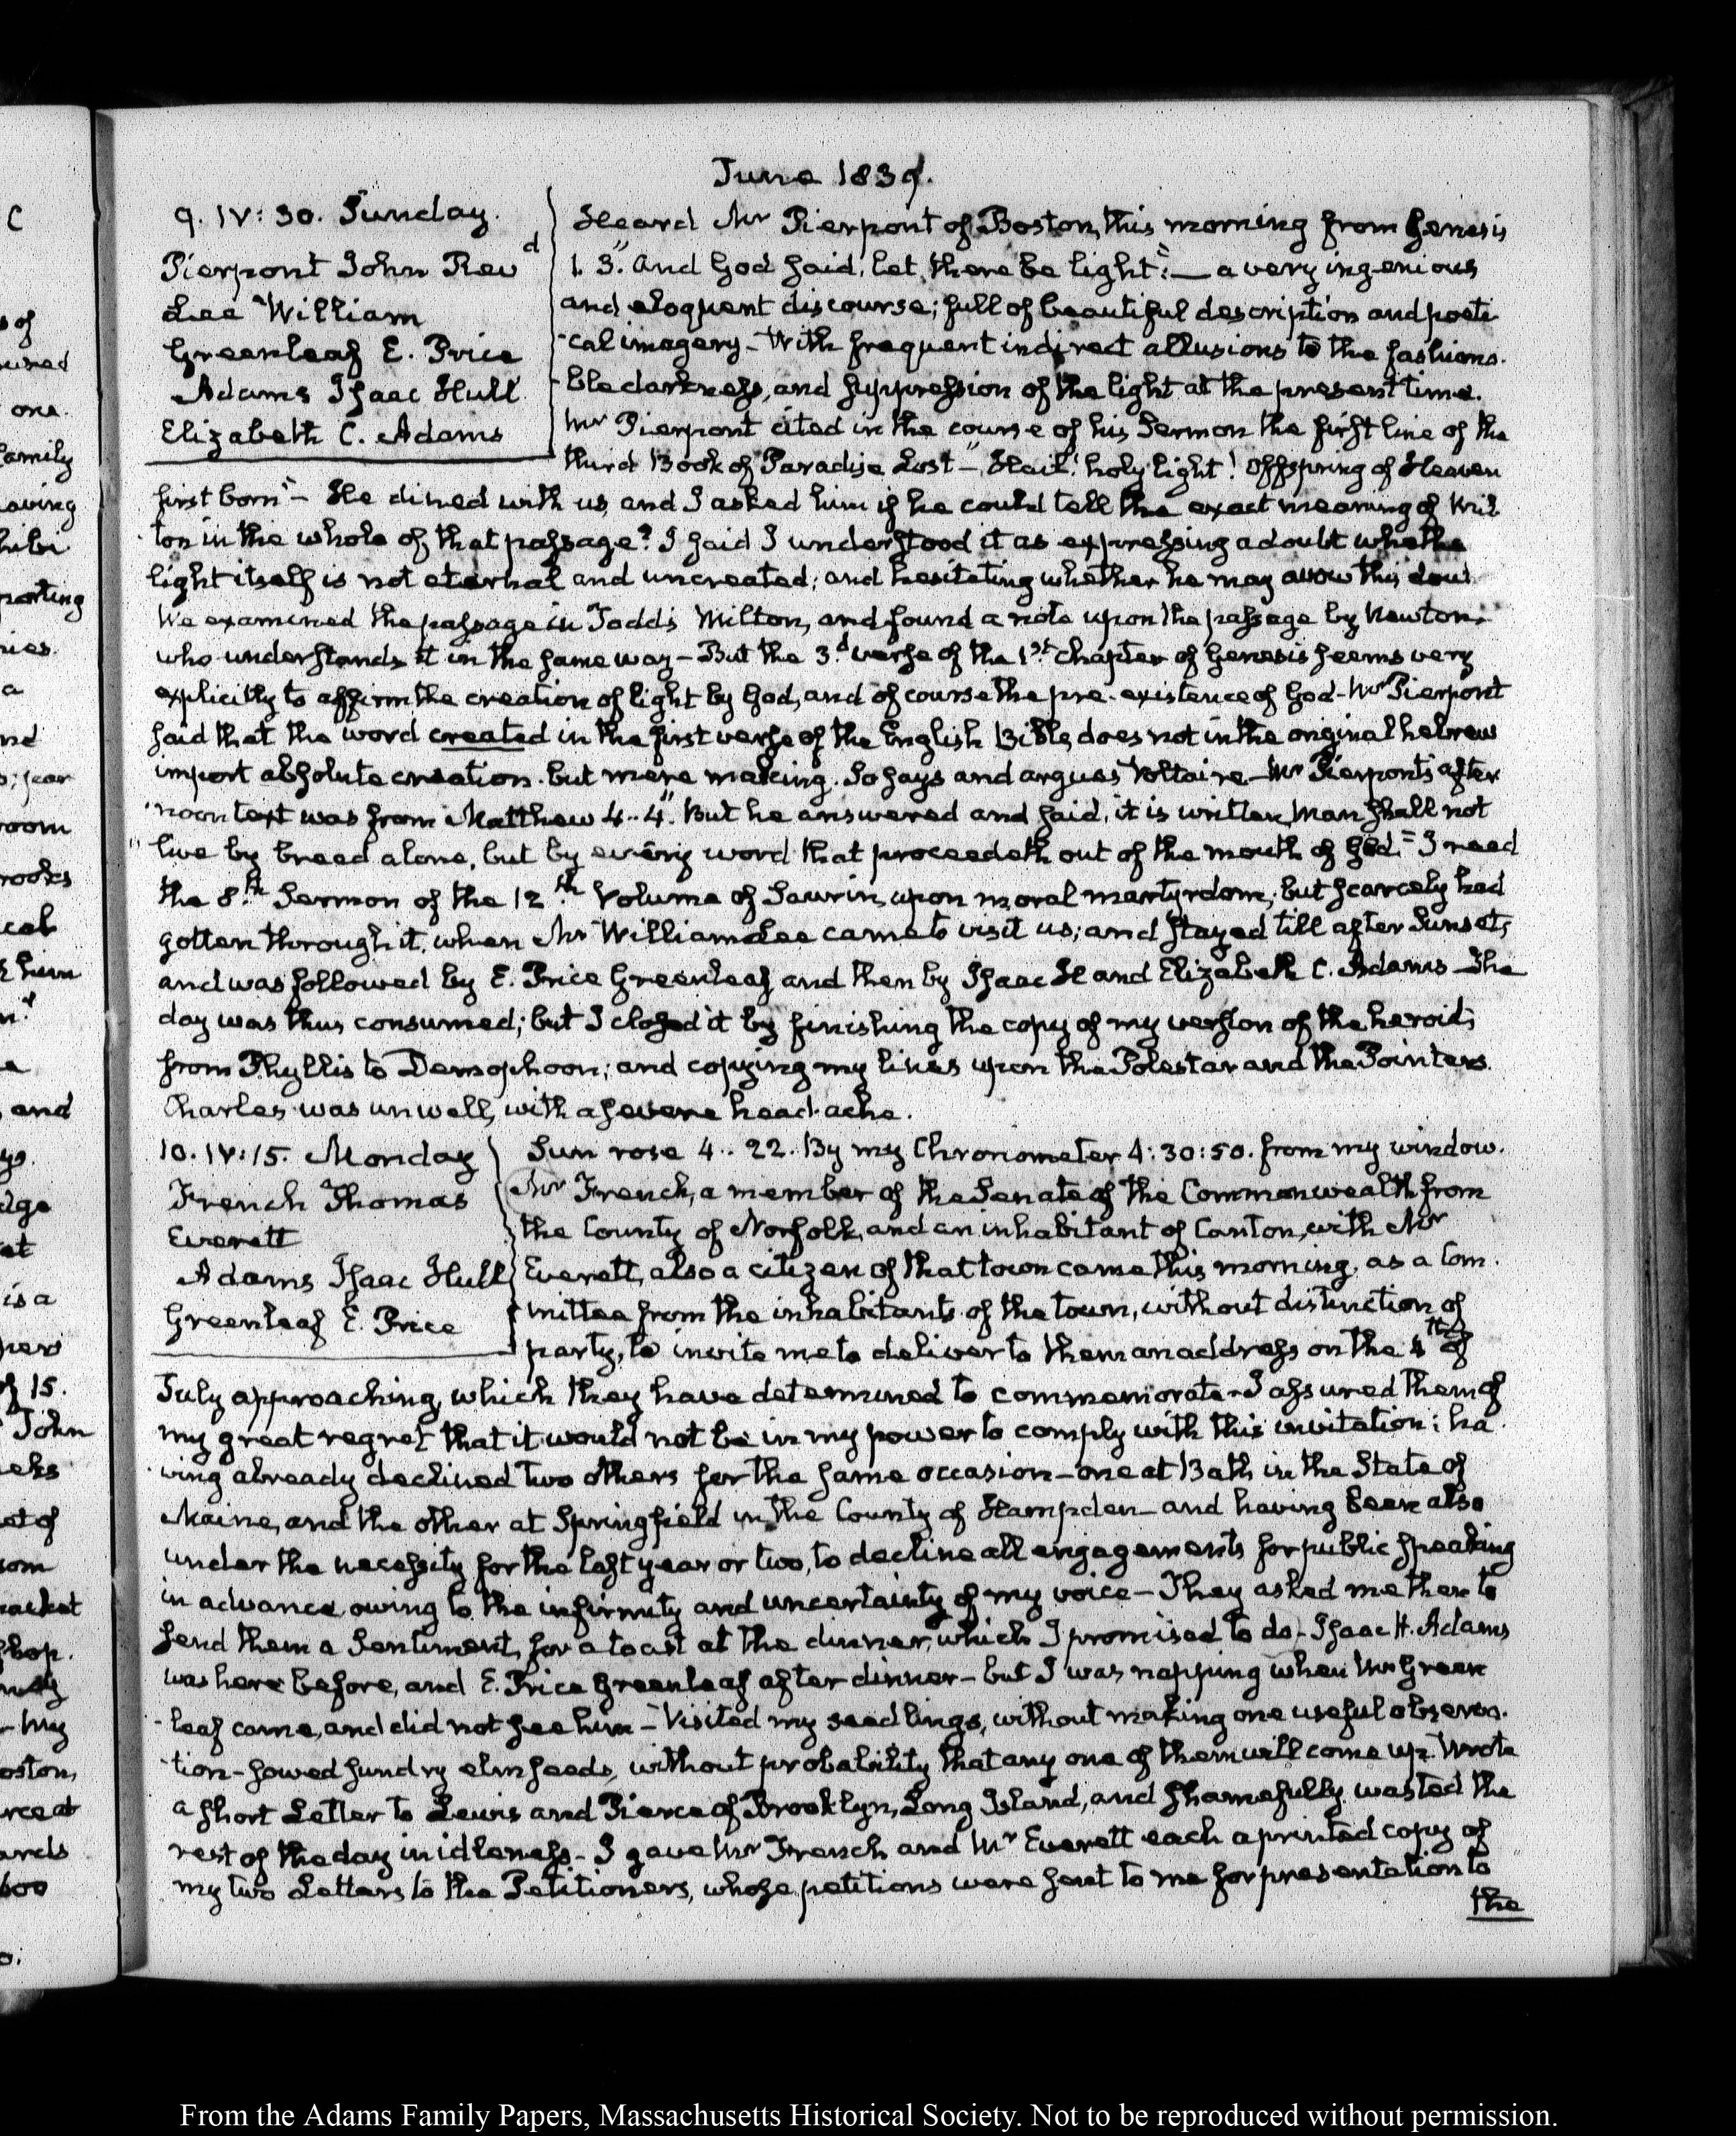 June 1839.
9. IV: 30. Sunday.
Pierpont John Revd
Lee William
Greenleaf E. Price
Adams Isaac Hull
Elizabeth C. Adams
Heard Mr Pierpont of Boston, this morning from Genesis
1. 3. "And God said, let there be light": — a very ingenious
and eloquent discourse; full of beautiful description and poeti
-cal imagery — With frequent indirect allusions to the fashiona-
-ble darkness, and suppression of the light at the present time.
Mr Pierpont cited in the course of his Sermon the first line of the
third Book of Paradise Lost — "Hail! holy light! offspring of Heaven
first born" — He dined with us, and I asked him if he could tell the exact meaning of Mil
-ton in the whole of that passage? I said I understood it as expressing a doubt whether
light itself is not eternal and uncreated; and hesitating whether he may avow this doubt.
We examined the passage in Todd's Milton, and found a note upon the passage by Newton,
who understands it in the same way — But the 3d verse of the 1st chapter of Genesis seems very
explicitly to affirm the creation of light by God, and of course the pre-existence of God — Mr Pierpont
said that the word created in the first verse of the English Bible, does not in the original hebrew
import absolute creation. but mere making. So says and argues Voltaire — Mr Pierpont's after
-noon text was from Matthew 4..4. "But he answered and said, it is written, Man shall not
"live by bread alone, but by every word that proceedeth out of the mouth of God." I read
the 8th Sermon of the 12th Volume of Saurin, upon moral martyrdom; but scarcely had
gotten through it, when Mr William Lee came to visit us; and stayed till after Sunset,
and was followed by E. Price Greenleaf and then by Isaac H and Elizabeth C. Adams — The
day was thus consumed; but I closed it by finishing the copy of my version of the heroid,
from Phyllis to Demophoon; and copying my lines upon the Polestar and the Pointers.
Charles was unwell, with a severe head-ache.
10. IV: 15. Monday
French Thomas
Everett
Adams Isaac Hull
Greenleaf E. Price
Sun rose 4..22. By my Chronometer 4:30:50. from my window.
Mr French, a member of the Senate of the Commonwealth from
the County of Norfolk, and an inhabitant of Canton, with Mr
Everett, also a citizen of that town came this morning, as a Com-
-mittee from the inhabitants of the town, without distinction of
party, to invite me to deliver to them an address on the 4th of
July approaching, which they have determined to commemorate — I assured them of
my great regret that it would not be in my power to comply with this invitation; ha
-ving already declined two others for the same occasion — one at Bath in the State of
Maine, and the other at Springfield in the County of Hampden — and having been also
under the necessity for the last year or two, to decline all engagements for public speaking
in advance owing to the infirmity and uncertainty of my voice — They asked me then to
send them a Sentiment, for a toast at the dinner, which I promised to do — Isaac H. Adams
was here before, and E. Price Greenleaf after dinner — but I was napping when Mr Green
-leaf came, and did not see him — Visited my seedlings, without making one useful observa-
-tion — sowed sundry elm seeds, without probability that any one of them will come up. Wrote
a short Letter to Lewis and Pierce of Brooklyn, Long Island, and shamefully wasted the
rest of the day in idleness — I gave Mr French and Mr Everett each a printed copy of
my two Letters to the Petitioners, whose petitions were sent to me for presentation to
the
From the Adams Family Papers, Massachusetts Historical Society. Not to be reproduced without permission.